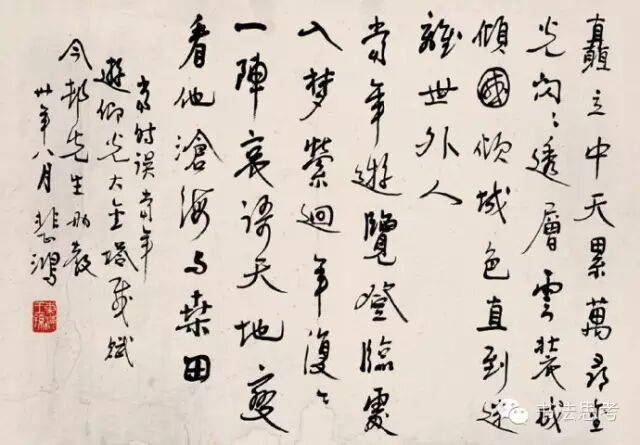 矗立中天累萬尋金
光閃々透層雲裝成
傾國傾城色直到迷
離世外人
當年遊覽登臨處
入夢縈迴年復々
一陣哀謌天地變
看他滄海与桒田
時誤當年
遊仰光大金塔感賦
今邨先生教
卅年八月 悲鴻
书法思考